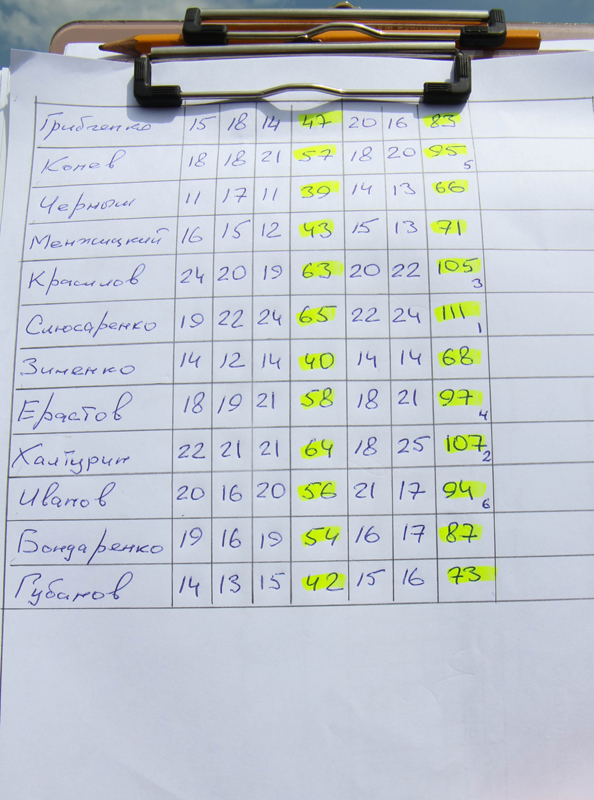 Грибченко 15 18 14 47 20 16 83
Конев 18 18 21 57 18 20 95 5
Черныш 11 17 11 39 14 13 66
Менжицкий 16 15 12 43 15 13 71
Красилов 24 20 19 63 20 22 105 3
Слюсаренко 19 22 24 65 22 24 111 1
Зименко 14 12 14 40 14 14 68
Ерастов 18 19 21 58 18 21 97 4
Халтурин 22 21 21 64 18 25 107 2
Иванов 20 16 20 56 21 17 94 6
Бондаренко 19 16 19 54 16 17 87
Губанов 14 13 15 42 15 16 73